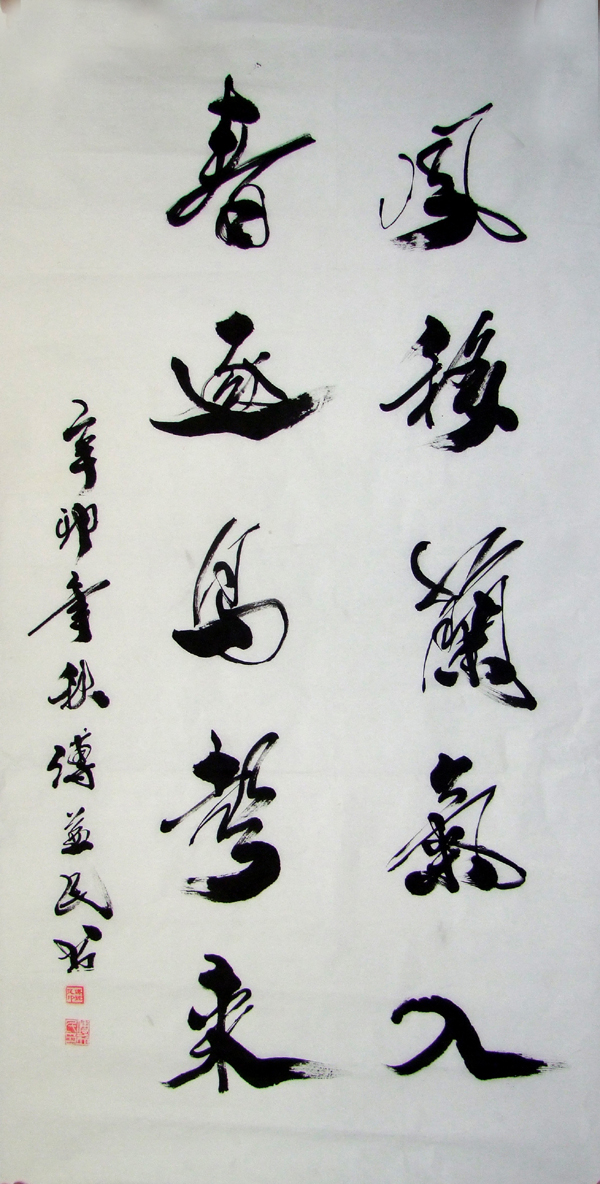 風移蘭氣入
春逐鳥聲來
辛卯年秋傅益民